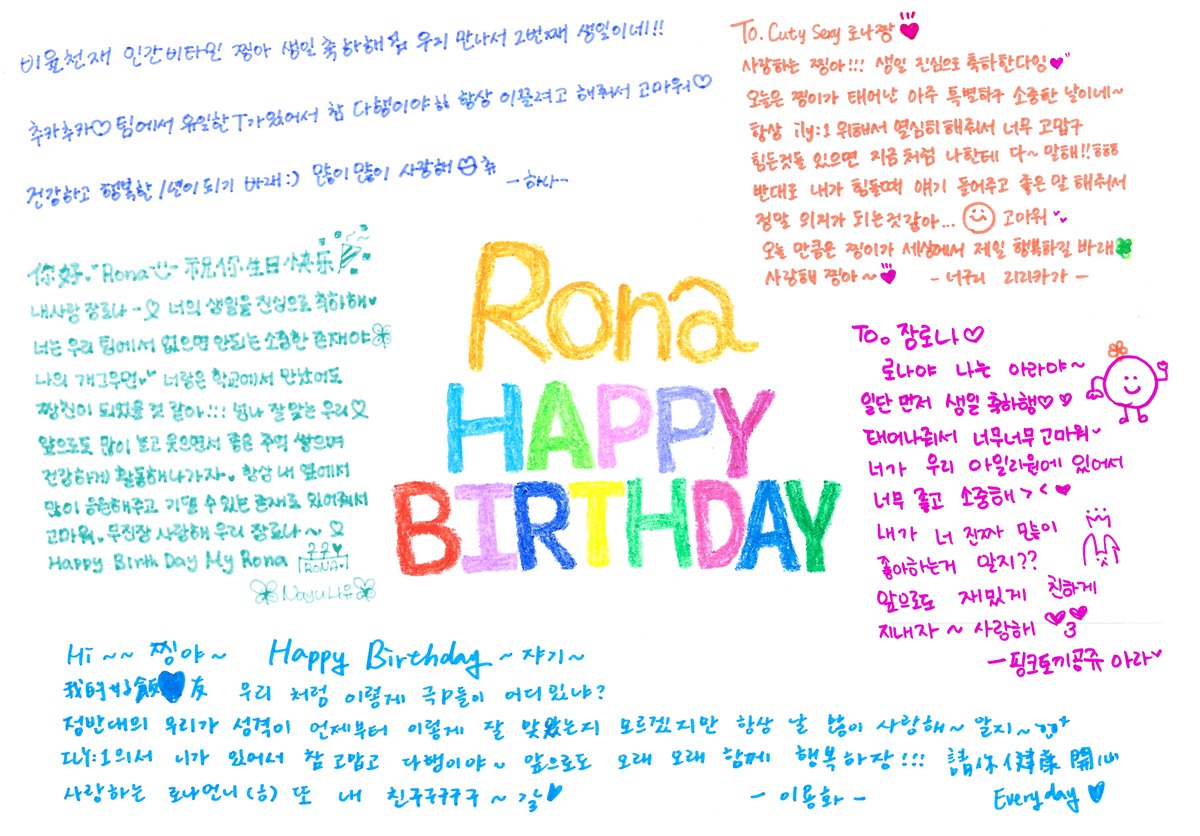 비율천재 인간비타민 찡아 생일 축하해 우리 만나서 2번째 생일이네!!
추카추카♡ 팀에서 유일한 T가있어서 참 다행이야ㅎㅎ 항상 이끌려고 해줘서 고마워♡
건강하고 행복한 1년이 되기 바래:) 많이많이 사랑해 쮸
-하나-
To. Cuty Sexy 로나짱
사랑하는 찡아!!! 생일 진심으로 축하한다잉
오늘은 찡이가 태어난 아주 특별하구 소중한 날이네~
항상 ily:1 위해서 열심히 해줘서 너무 고맙구
힘든것들 있으면 지금처럼 나한테 다~ 말해!!ㅎㅎㅎ
반대로 내가 힘들때 얘기 들어주고 좋은말 해줘서
정말 의지가 되는것같아... 고마워
오늘 만큼은 찡이가 세상에서 제일 행복하길 바래
사랑해 찡아~ - 너구리 리리카가 -
你好 Rona 祝你生日快乐
내사랑 장로나 ♡ 너의 생일을 진심으로 축하해♥
너는 우리 팀에서 없으면 안되는 소중한 존재야
나의 개그우먼 너랑은 학교에서 만났어도
짱친이 되었을 것 같아!!! 넘나 잘 맞는 우리♡
앞으로도 많이 보고 웃으면서 좋은 추억 쌓으며
건강하게 활동해나가자. 항상 내 옆에서
많이 응원해주고 기댈 수 있는 존재로 있어줘서
고마워. 무진장 사랑해 우리 장로나~
Happy Birth Day My Rona
RONA
Nayu 나유
Rona
HAPPY
BIRTHDAY
To. 장로나♡
로나야 나는 아라야~
일단 먼저 생일 축하행♡♡
태어나줘서 너무너무 고마워~
너가 우리 아일리원에 있어서
너무 좋고 소중해 > < ♥
내가 너 진짜 많이
좋아하는거 알지??
앞으로도 재밌게 친하게
지내자~ 사랑해 ♥3♥
-핑크토끼공쥬 아라
Hi~~ 찡야~ Happy Birthday ~ 쟈기~
我的好飯友 우리 처럼 이렇게 극P들이 어디 있냐?
정반대의 우리가 성격이 언제부터 이렇게 잘 맞았는지 모르겠지만 항상 날 많이 사랑해~ 알지~
ILY:1의서 니가 있어서 참 고맙고 다행이야~ 앞으로도 오래 오래 함께 행복하장!!! 請你健康開心
사랑하는 로나언니(ㅎ) 또 내 친구구구구구~ - 이용화 - Everyday ♡